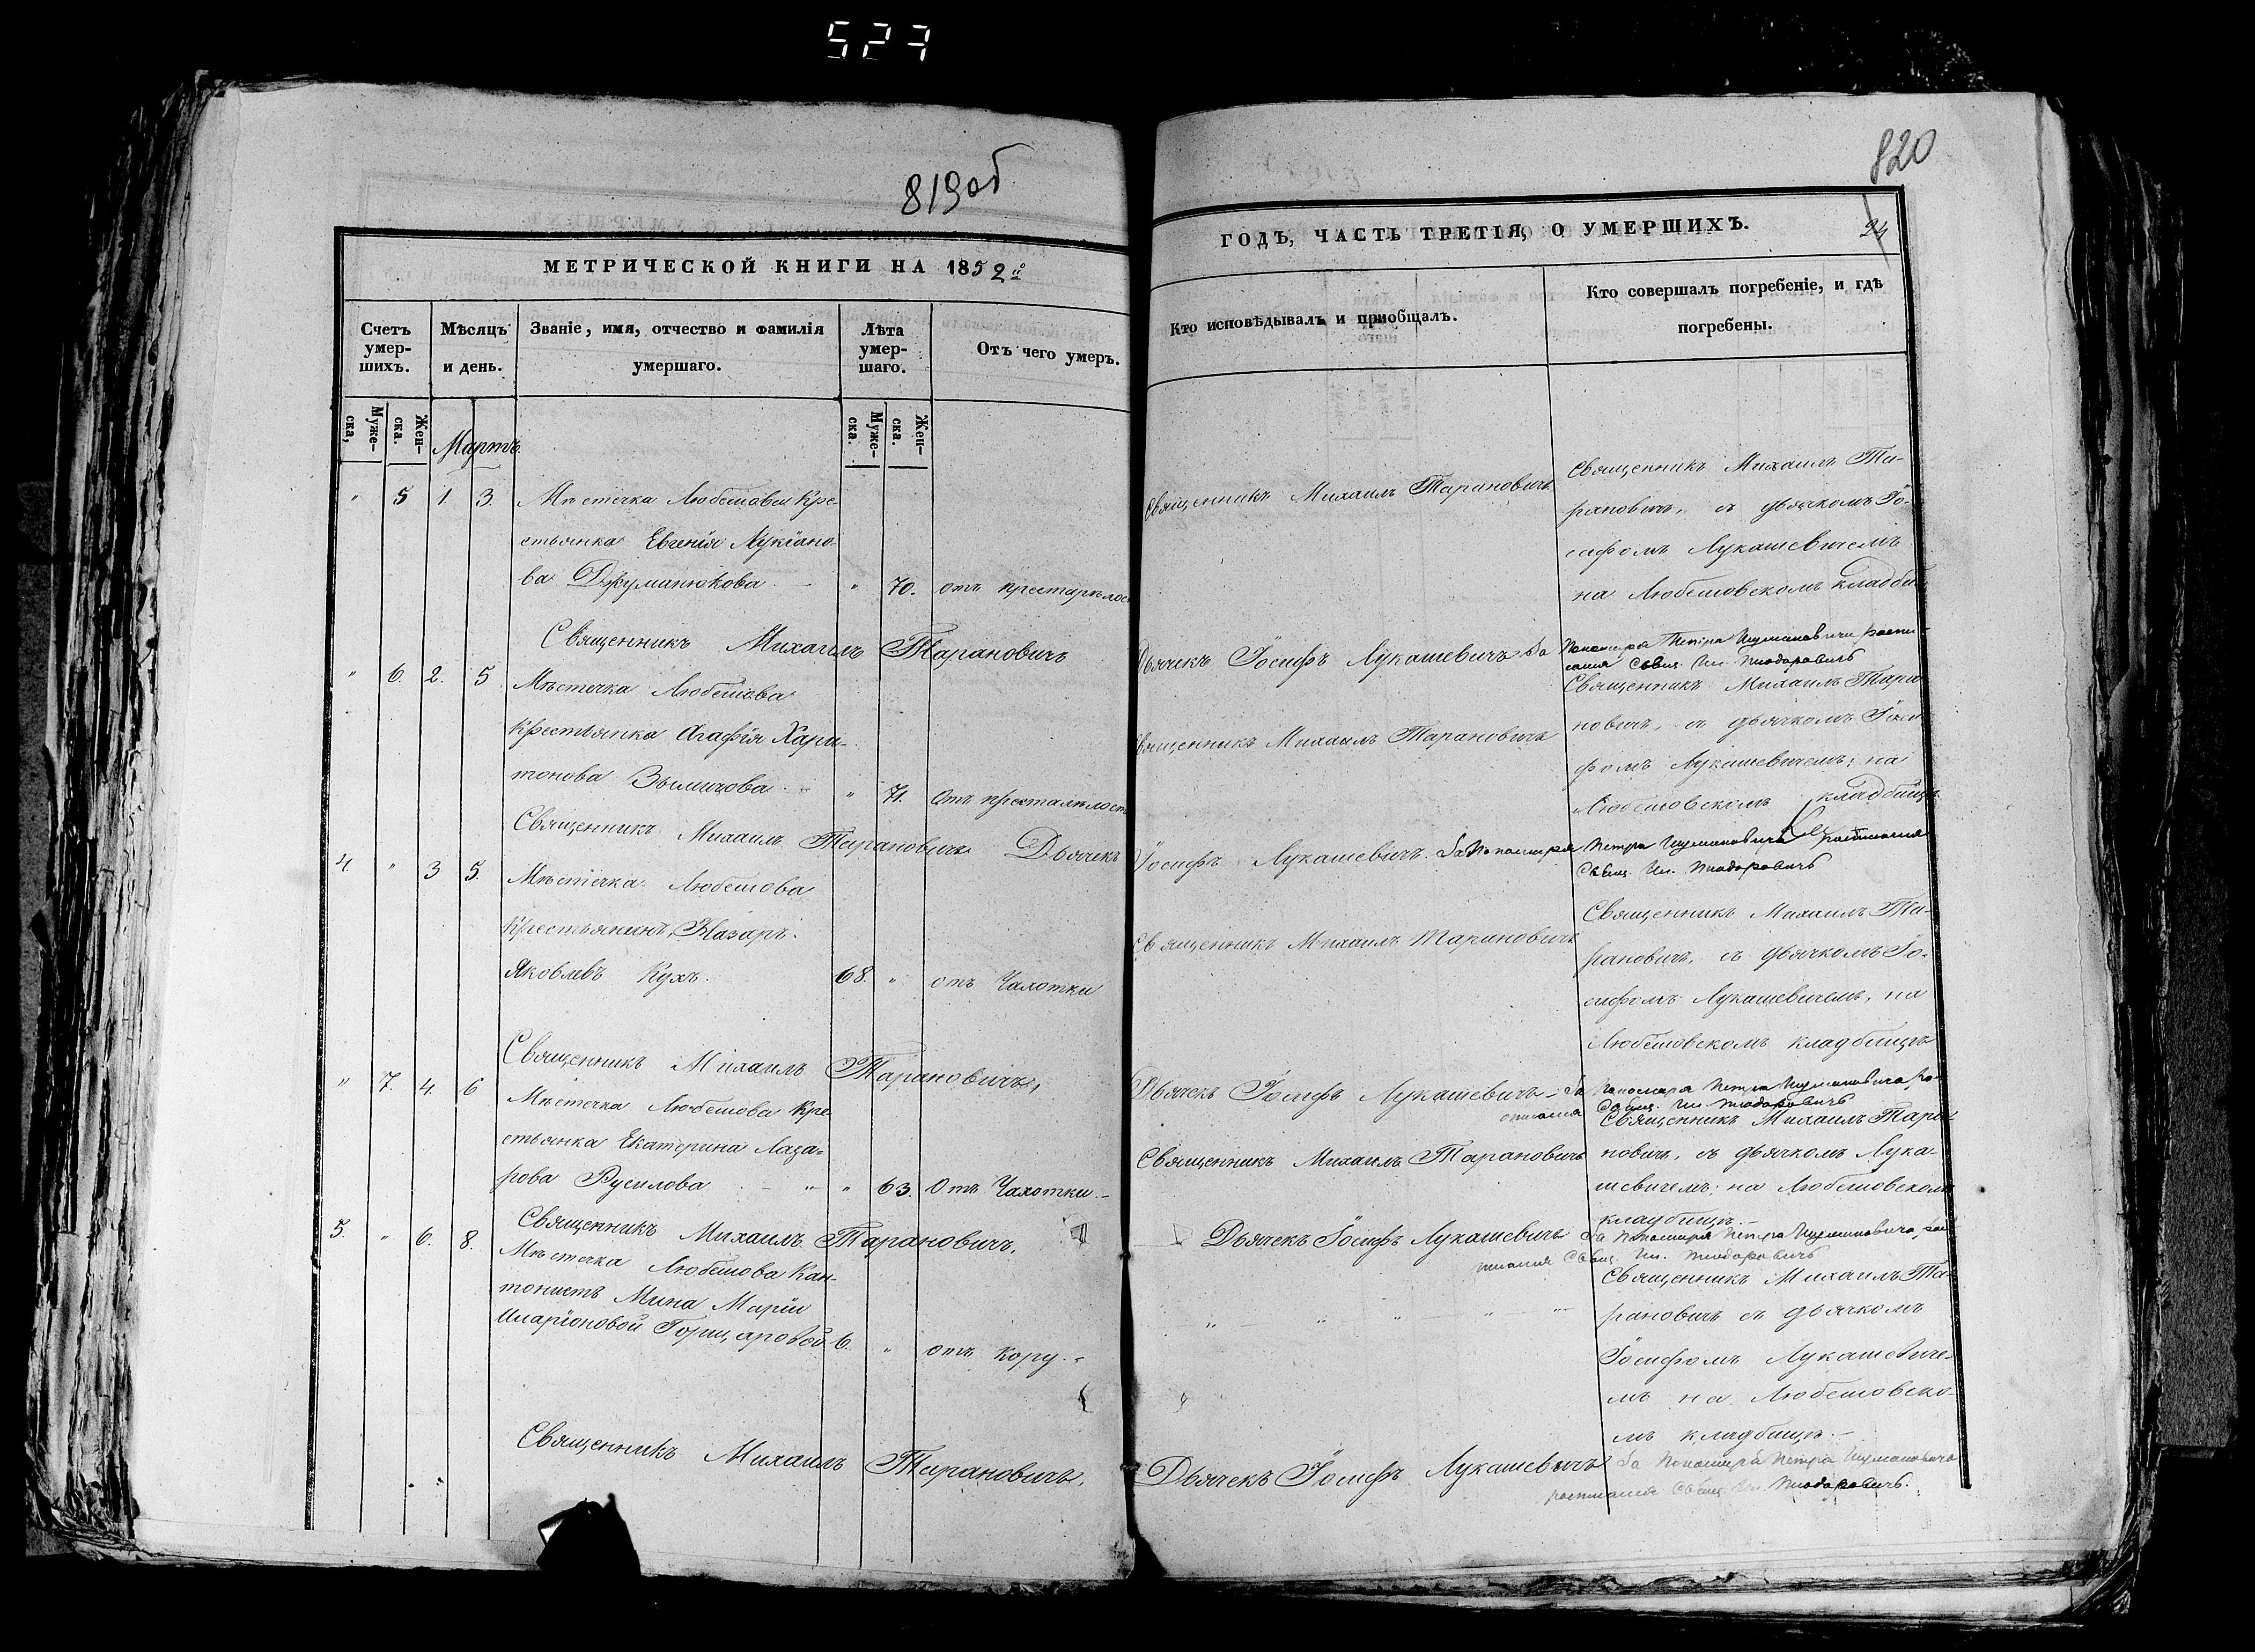 527
819об
820
МЕТРИЧЕСКОЙ КНИГИ НА 1852й
ГОДЪ, ЧАСТЬ ТРЕТІЯ, О УМЕРШИХЪ.
24
Счетъ умер-шихъ.
Мѣсяцъ и день.
Званіе, имя, отчество и фамилія умершаго.
Лѣта умер-шаго.
Отъ чего умеръ.
Кто исповѣдывалъ и пріобщалъ.
Кто совершалъ погребеніе, и гдѣ погребены.
Муже-ска,
Жен-ска.
Муже-ска.
Жен-ска.
Мартъ.
" 5 1 3. Мѣстечка Любешова Кре-
стьянка Евгенія Лукіано-
ва Джуманюкова. " 70. отъ престарѣлос
Священникъ Михаилъ Тарановичъ
Священникъ Михаилъ Та-
рановичъ, съ дьячкомъ Іо-
сифомъ Лукашевичемъ
на Любешовскомъ кладби
Священникъ Михаилъ Тарановичъ
Дьячекъ Іосифъ Лукашевичъ За Пономаря Петра
" 6. 2. 5 Мѣстечка Любешова
Крестьянка Агафія Хари-
тонова " 71. Отъ престалѣлост
Священникъ Михаилъ Тарановичъ
Священникъ Михаилъ Тара
новичъ, съ дьячкомъ Іоси
фомъ Лукашевичемъ, на
Любешовскомъ кладбищѣ
Священникъ Михаилъ Тарановичъ Дьячекъ
Іосифъ Лукашевичъ. За Пономаря Петра
4. " 3 5. Мѣстечка Любешова
Крестьянинъ Назаръ
Яковлевъ Кухъ. 68. " отъ Чахотки
Священникъ Михаилъ Тарановичъ
Священникъ Михаилъ Та-
рановичъ, съ дьячкомъ Іо-
сифомъ Лукашевичемъ, на
Любешовскомъ кладбищѣ
Священникъ Михаилъ Тарановичъ,
Дьячекъ Іосифъ Лукашевичъ - За Пономаря Петра
" 7. 4. 6 Мѣстечка Любешова Кре
стьянка Екатерина Лаза-
рова Русилова " 63. Отъ Чахотки.
Священникъ Михаилъ Тарановичъ
Священникъ Михаилъ Тара
новичъ, съ дьячкомъ Лука-
шевичемъ, на Любешовскомъ
кладбищѣ.
Священникъ Михаилъ Тарановичъ.
Дьячекъ Іосифъ Лукашевичъ За Пономаря Петра
5. " 6. 8. Мѣстечка Любешова Кан-
тонистъ Мина Маріи
Иларіоновой 6. " отъ Кору.
Священникъ Михаилъ Та-
рановичъ съ дьячкомъ
Іосифомъ Лукашевиче-
мъ на Любешовско-
мъ кладбищѣ.
Священникъ Михаилъ Тарановичъ,
Дьячекъ Іосифъ Лукашевичъ За Пономаря Петра